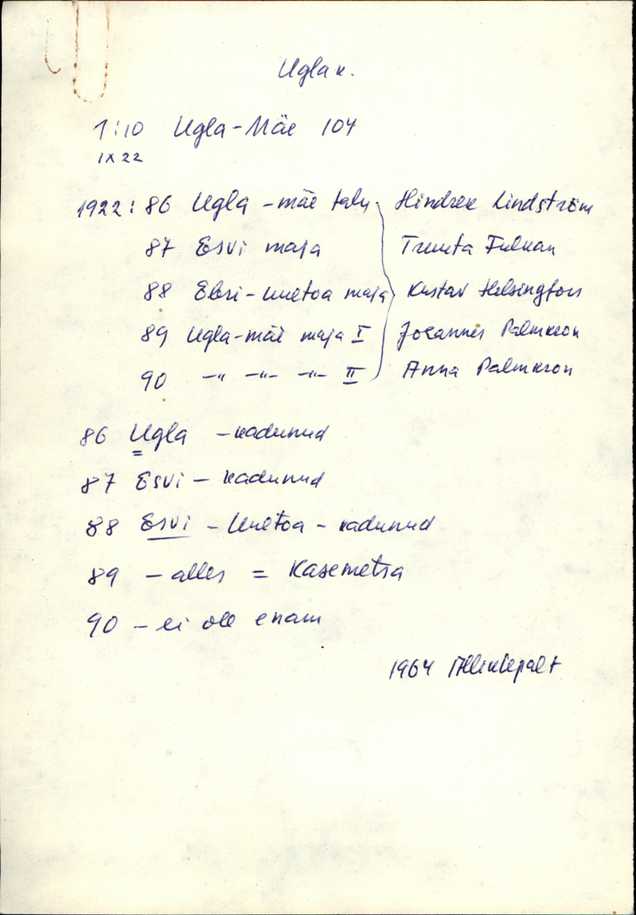 Ugla k.
1:10 Ugla-Mäe 104
IX 22
1922: 86 Ugla - mäe talu Hindrek Lindström
87 Esvi maja Truuta Fulkan
88 Ebri-Uuetoa maja Kustav Helsingfors
89 Ugla-mäe maja I Johannes Palmkron
90 -"- -"- -"- II Anna Palmkron
86 Ugla - kadunud
87 Esvi - kadunud
88 Esvi - Uuetoa - kadunud
89 - alles = Kasemetsa
90 - ei ole enam
1964